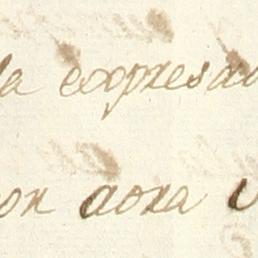 la expresa
on aora